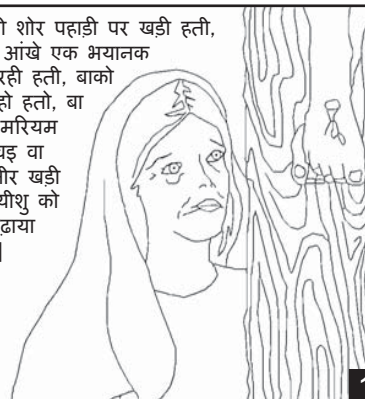 शोर पहाड़ी पर खड़ी हती,
आंखे एक भयानक
रही हती, बाको
हतो, बा
मरियम
वा
खड़ी
यीशु को